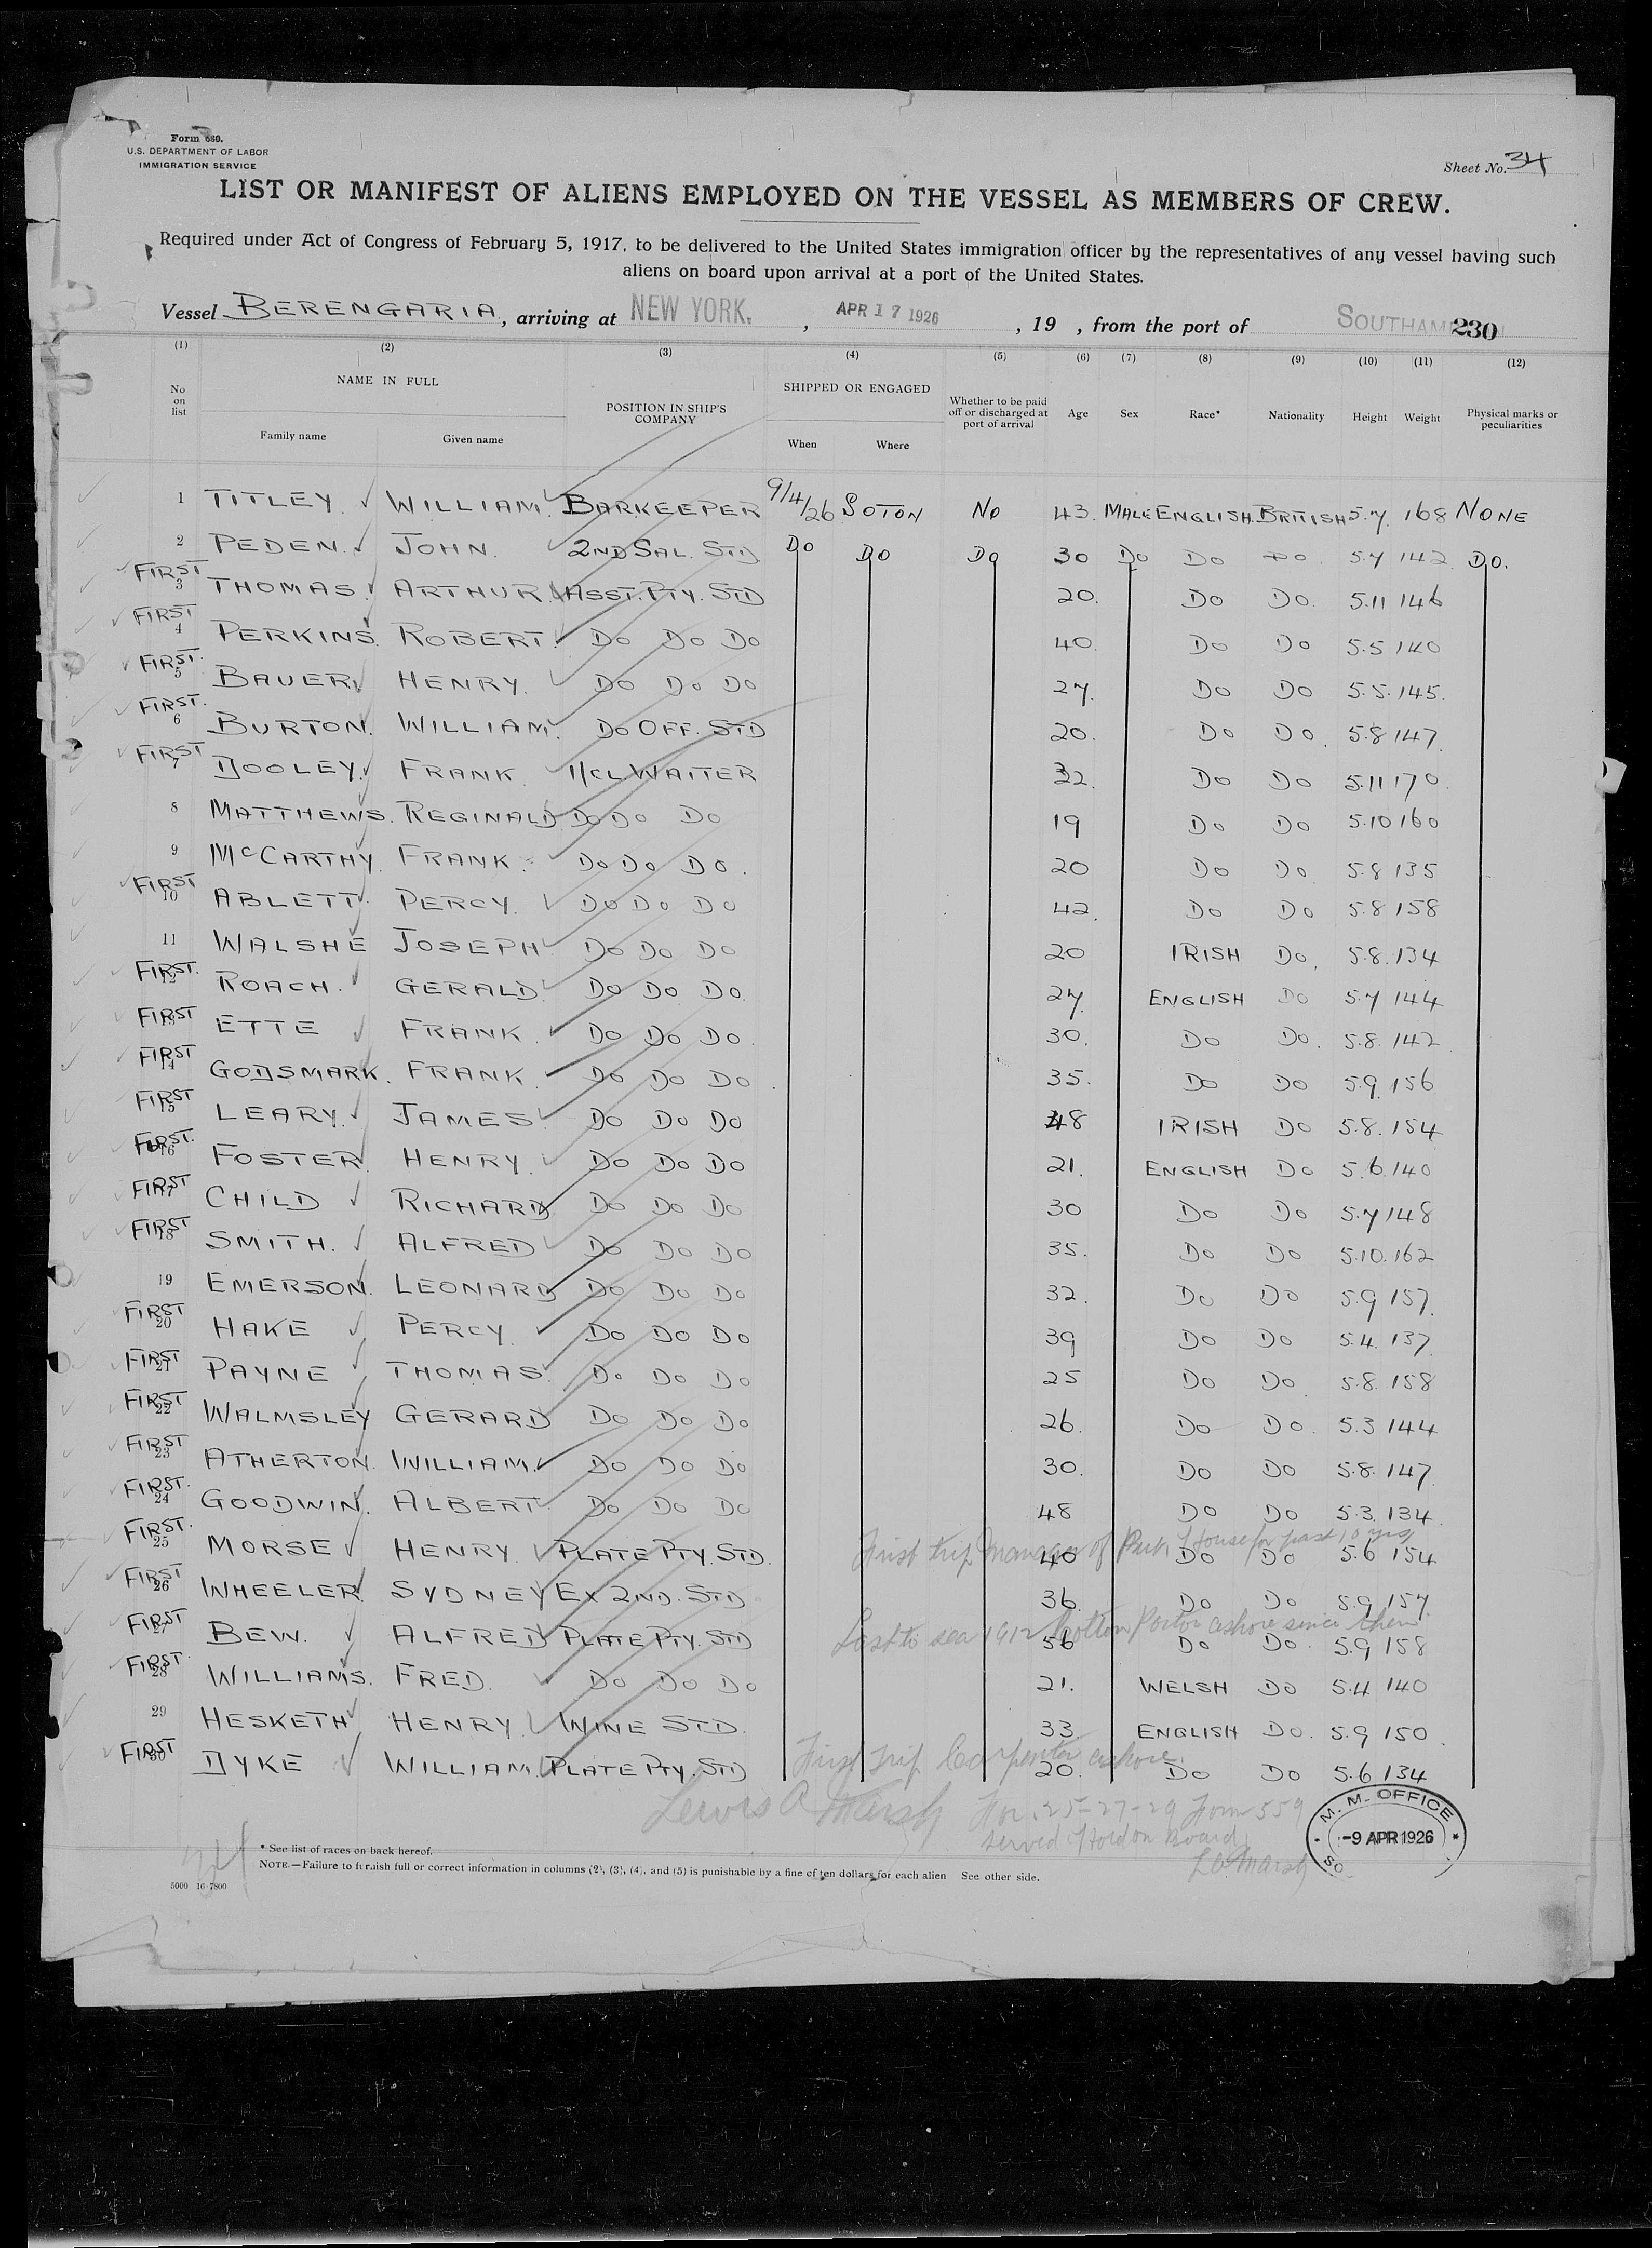 Form 680.
U.S. DEPARTMENT OF LABOR
IMMIGRATION SERVICE
Sheet No. 34
LIST OR MANIFEST OF ALIENS EMPLOYED ON THE VESSEL AS MEMBERS OF CREW.
Required under Act of Congress of February 5, 1917, to be delivered to the United States immigration officer by the representatives of any vessel having such
aliens on board upon arrival at a port of the United States.
Vessel BERENGARIA, arriving at NEW YORK, APR 17 1926, 19 , from the port of SOUTHAM 230
(1) (2) (3) (4) (5) (6) (7) (8) (9) (10) (11) (12)
No on list NAME IN FULL Family name Given name POSITION IN SHIP'S COMPANY SHIPPED OR ENGAGED When Where Whether to be paid off or discharged at port of arrival Age Sex Race* Nationality Height Weight Physical marks or peculiarities
1 TITLEY WILLIAM BARKEEPER 9/4/26 SOTON NO 43 MALE ENGLISH BRITISH 5.7 168 NONE
2 PEDEN JOHN 2ND SAL. STD Do Do Do 30 Do Do Do 5.7 142 Do.
FIRST 3 THOMAS ARTHUR ASST. PTY. STD 20 Do Do 5.11 146
FIRST 4 PERKINS ROBERT Do Do Do 40 Do Do 5.5 140
FIRST 5 BAUER HENRY Do Do Do 27 Do Do 5.5 145
FIRST 6 BURTON WILLIAM Do OFF. STD 20 Do Do 5.8 147
FIRST 7 DOOLEY FRANK 1/CL WAITER 32 Do Do 5.11 170
8 MATTHEWS REGINALD Do Do Do 19 Do Do 5.10 160
9 McCARTHY FRANK Do Do Do 20 Do Do 5.8 135
FIRST 10 ABLETT PERCY Do Do Do 42 Do Do 5.8 158
11 WALSHE JOSEPH Do Do Do 20 IRISH Do 5.8 134
FIRST 12 ROACH GERALD Do Do Do 27 ENGLISH Do 5.7 144
FIRST 13 ETTE FRANK Do Do Do 30 Do Do 5.8 142
FIRST 14 GODSMARK FRANK Do Do Do 35 Do Do 5.9 156
FIRST 15 LEARY JAMES Do Do Do 48 IRISH Do 5.8 154
FIRST 16 FOSTER HENRY Do Do Do 21 ENGLISH Do 5.6 140
FIRST 17 CHILD RICHARD Do Do Do 30 Do Do 5.7 148
FIRST 18 SMITH ALFRED Do Do Do 35 Do Do 5.10 162
19 EMERSON LEONARD Do Do Do 32 Do Do 5.9 157
FIRST 20 HAKE PERCY Do Do Do 39 Do Do 5.4 137
FIRST 21 PAYNE THOMAS Do Do Do 25 Do Do 5.8 158
FIRST 22 WALMSLEY GERARD Do Do Do 26 Do Do 5.3 144
FIRST 23 ATHERTON WILLIAM Do Do Do 30 Do Do 5.8 147
FIRST 24 GOODWIN ALBERT Do Do Do 48 Do Do 5.3 134
First trip Manager of House for past 10 yrs
FIRST 25 MORSE HENRY PLATE PTY. STD. 40 Do Do 5.6 154
FIRST 26 WHEELER SYDNEY EX 2ND. STD 36 Do Do 5.9 157
Last to sea 1912 Cotton Porter ashore since then
FIRST 27 BEW. ALFRED PLATE PTY. STD 56 Do Do 5.9 158
FIRST 28 WILLIAMS FRED. Do Do Do 21 WELSH Do 5.4 140
29 HESKETH HENRY WINE STD. 33 ENGLISH Do 5.9 150
First trip Carpenter ashore.
FIRST 30 DYKE WILLIAM PLATE PTY. STD 20 Do Do 5.6 134
Lewis A Marsh No. 25-27-29 Form 559
served Hold on Board
L A Marsh
M. M. OFFICE
-9 APR 1926
SO
* See list of races on back hereof.
NOTE.—Failure to furnish full or correct information in columns (2), (3), (4), and (5) is punishable by a fine of ten dollars for each alien See other side.
5000 16-7800